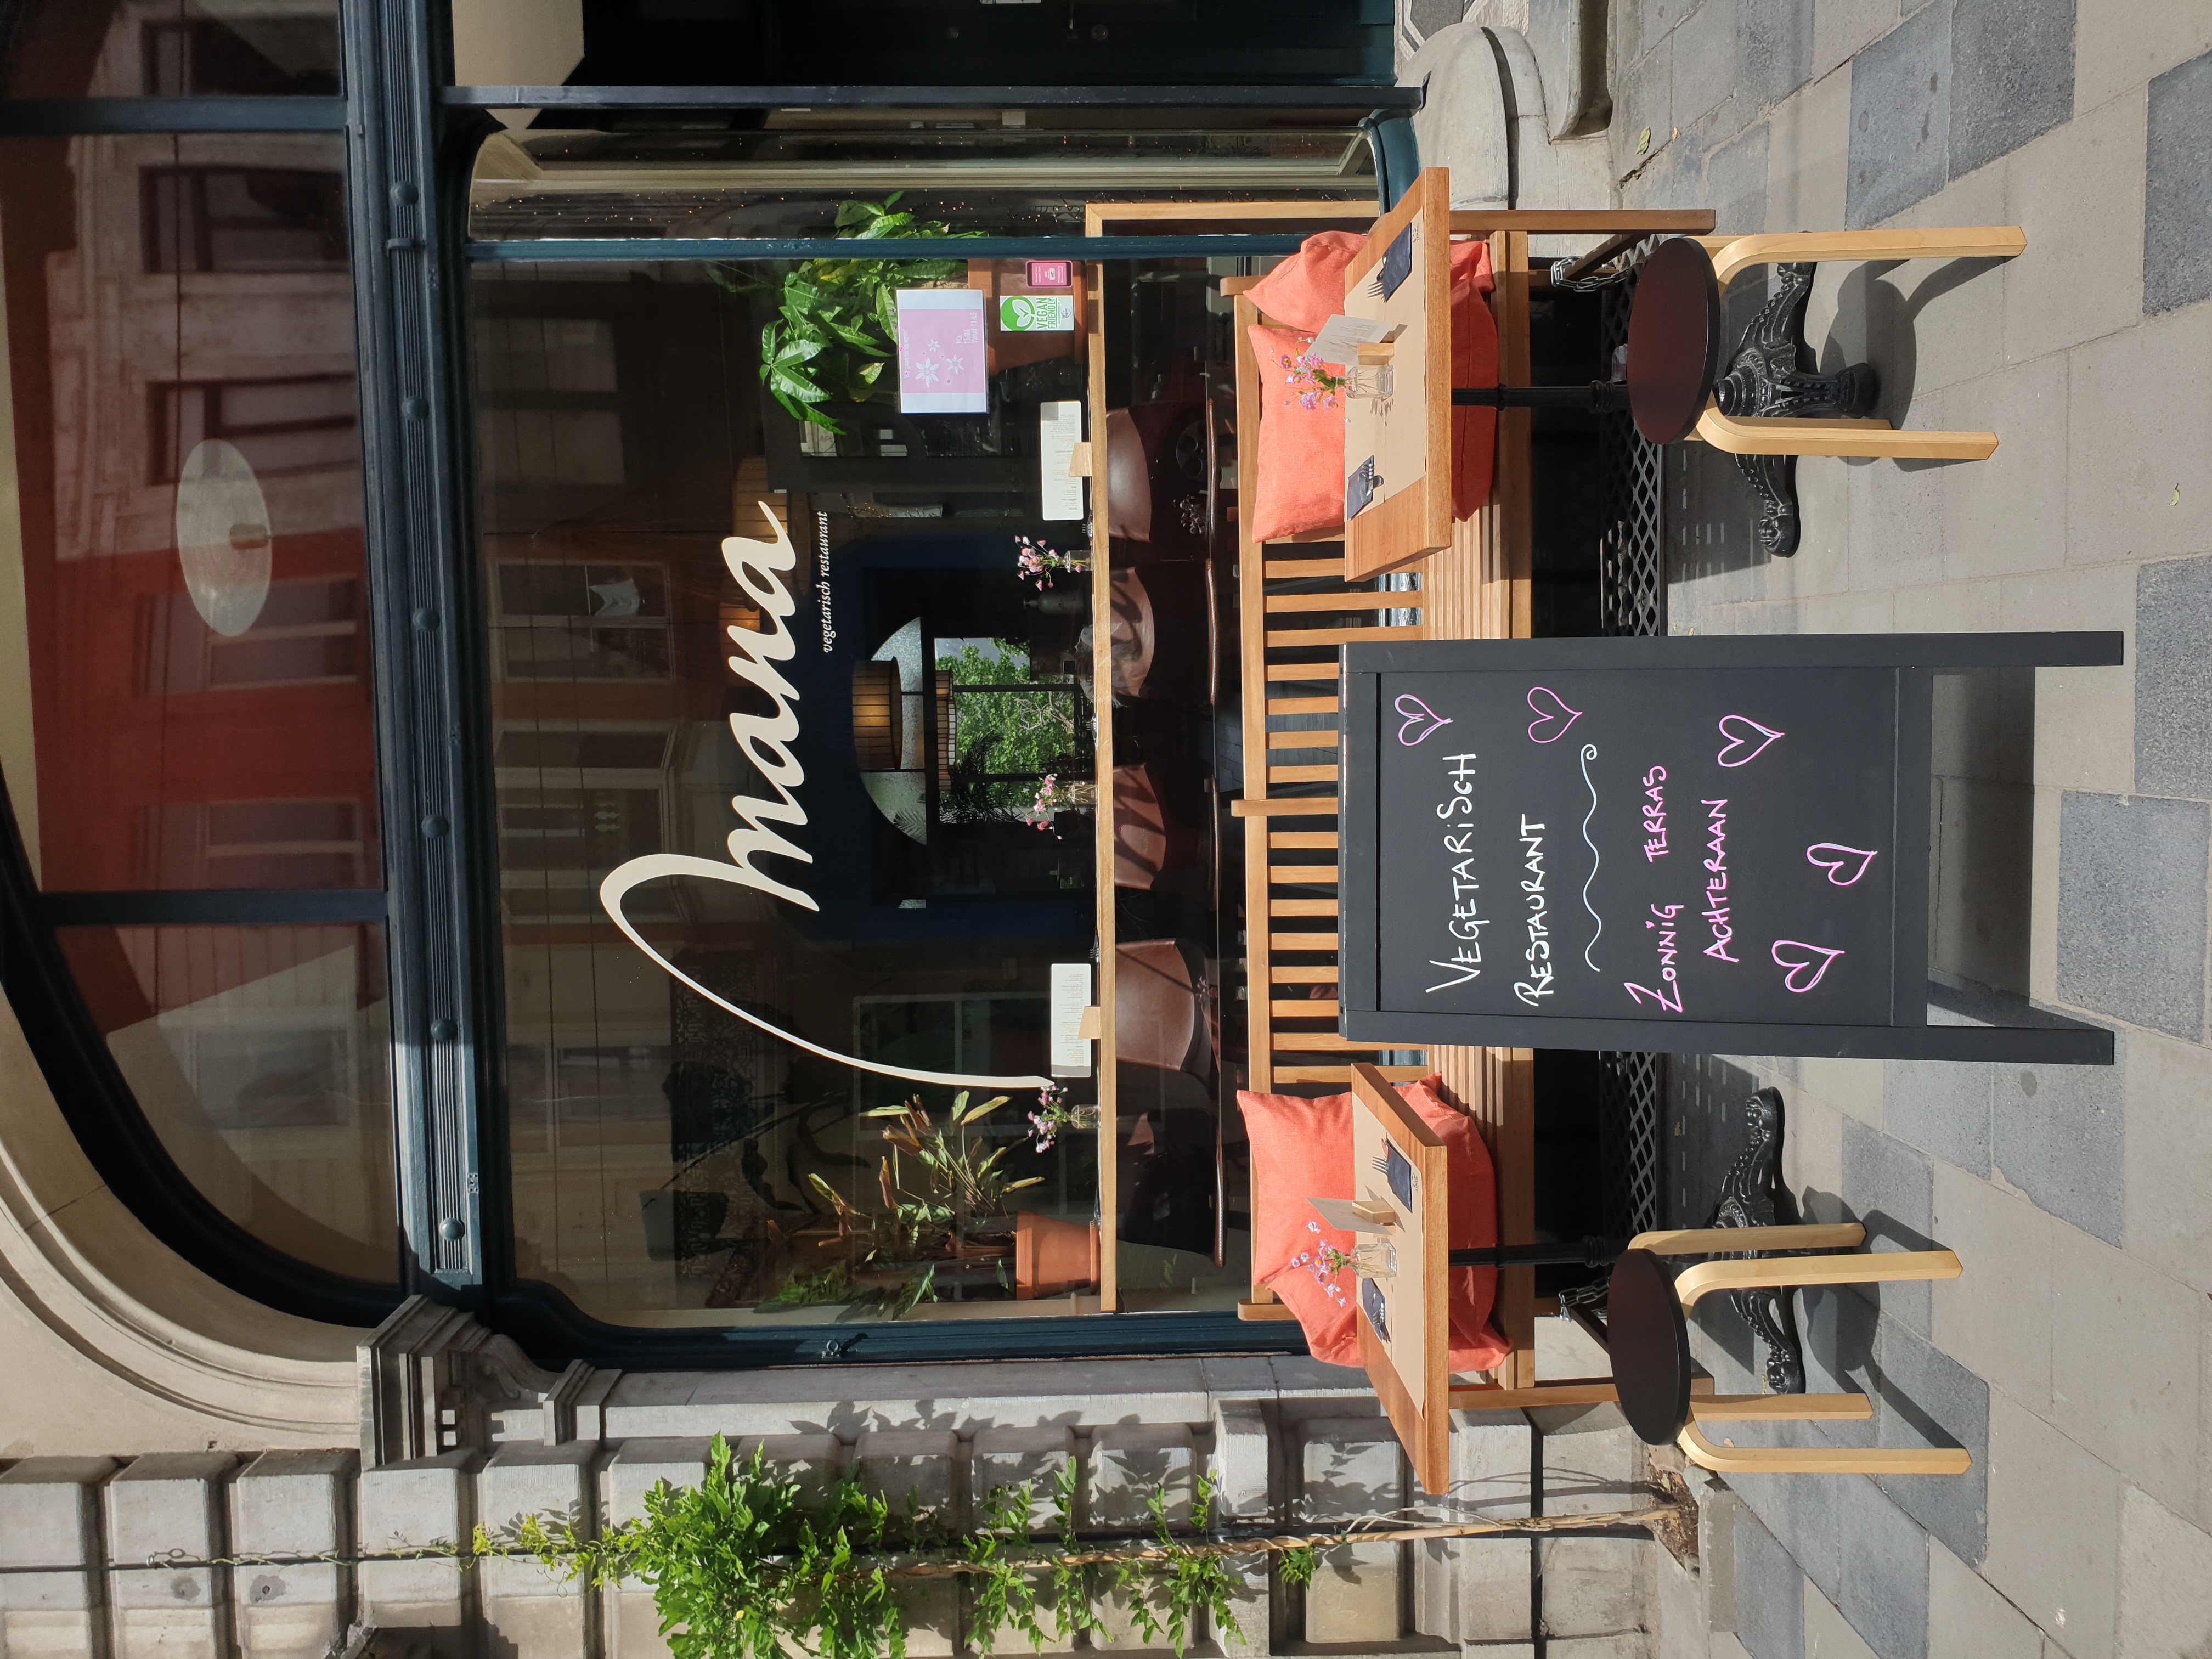 mana
vegetarisch restaurant
VEGAN
FRIENDLY
VEGETARiSCH
RESTAURANT
ZONNiG TERRAS
ACHTERAAN